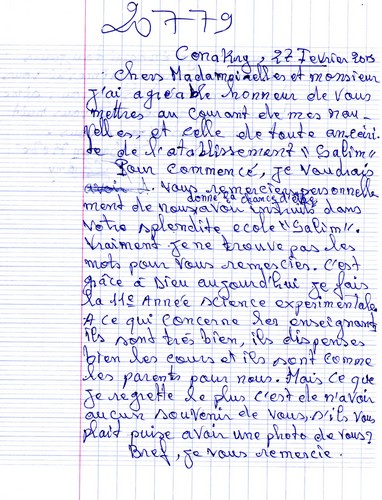 20779
Conakry, 27 Fevrier 2015
Chers Madamoiselles et monsieur
J'ai agréable honneur de vous
mettres au courant de mes nou-
velles, et celle de toute
de l'etablissement "Salim".
Pour commencé, je voudrais
vous remercier personnelle
ment de nous avoir donné la chance d'être instruits dans
votre splendite ecole "Salim".
Vraiment je ne trouve pas les
mots pour vous remercies. C'est
grâce à Dieu aujourd'hui je fais
la 11e Année science experimentale.
A ce qui concerne les enseignants
ils sont très bien, ils dispenses
bien les cours et ils sont comme
les parents pour nous. Mais ce que
je regrette le plus c'est de n'avoir
aucun souvenir de vous, s'ils vous
plait puise avoir une photo de vous?
Bref, je vous remercie.